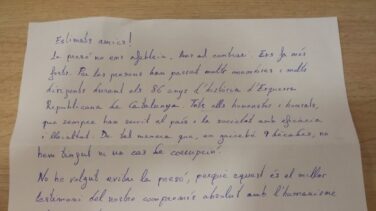 Estimats amics!
La presó no ens afebleix. Ans al contrari. Ens fa més
forts. Per les presons han passat molts consellers i molts
dirigents durant els 86 anys d'història d'Esquerra
Republicana de Catalunya. Tots ells honestos i honrats,
que sempre han servit al país i la societat amb eficàcia
i lleialtat. De tal manera que, en gairebé 9 dècades, no
hem tingut ni un cas de corrupció.
No he volgut evitar la presó, perquè aquest és el millor
testimoni del nostre compromís absolut amb l'humanisme